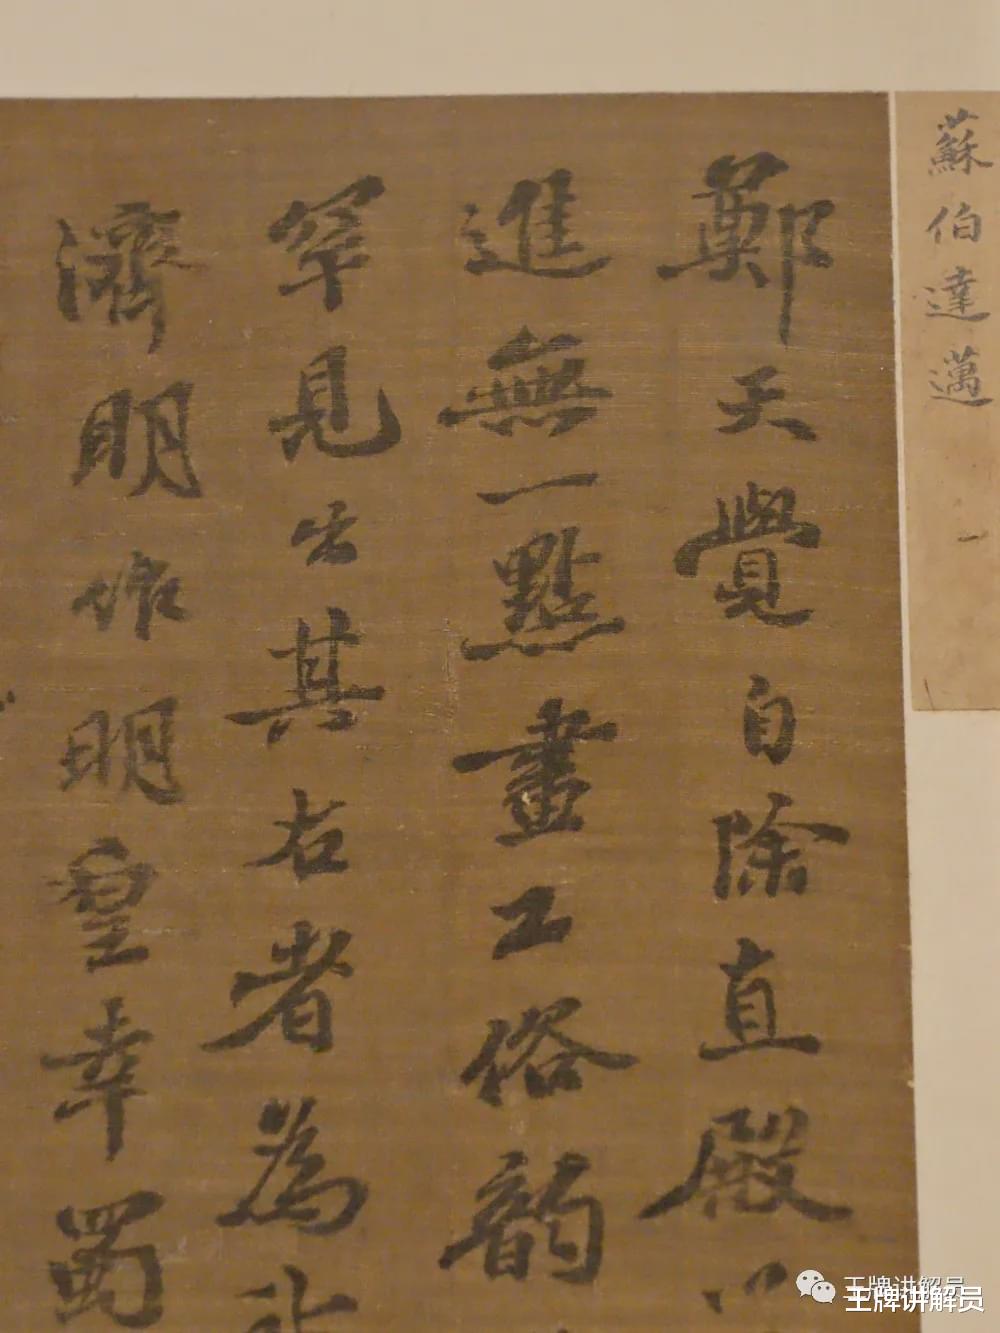 蘇伯達邁
鄭天覺自除直殿以
進無一點畫工俗韵
罕見出其右者為
濟明作明皇幸蜀
王牌讲解员
王牌讲解员